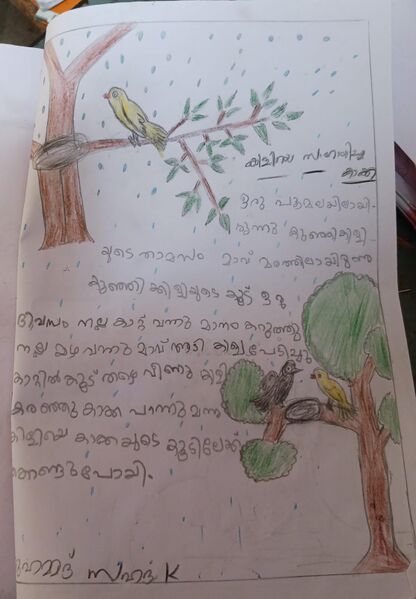 കിളിയെ സഹായിച്ച
കാക്ക
ഒരു പൂമലയിലായി-
രുന്നു കുഞ്ഞികിളി-
യുടെ താമസം മാവ് മരത്തിലായിരുന്നു
കുഞ്ഞിക്കിളിയുടെ കൂട് ഒരു
ദിവസം നല്ല കാറ്റ് വന്നു മാനം കറുത്തു
നല്ല മഴ വന്നു മാവ് ആടി കിളി പേടിച്ചു
കാറ്റിൽ കൂട് തഴെ വീണു കിളി
കരഞ്ഞു കാക്ക പറന്നു വന്നു
കിളിയെ കാക്കയുടെ കൂട്ടിലേക്ക്
കൊണ്ടുപോയി.
മുഹമ്മദ് സഹദ് K